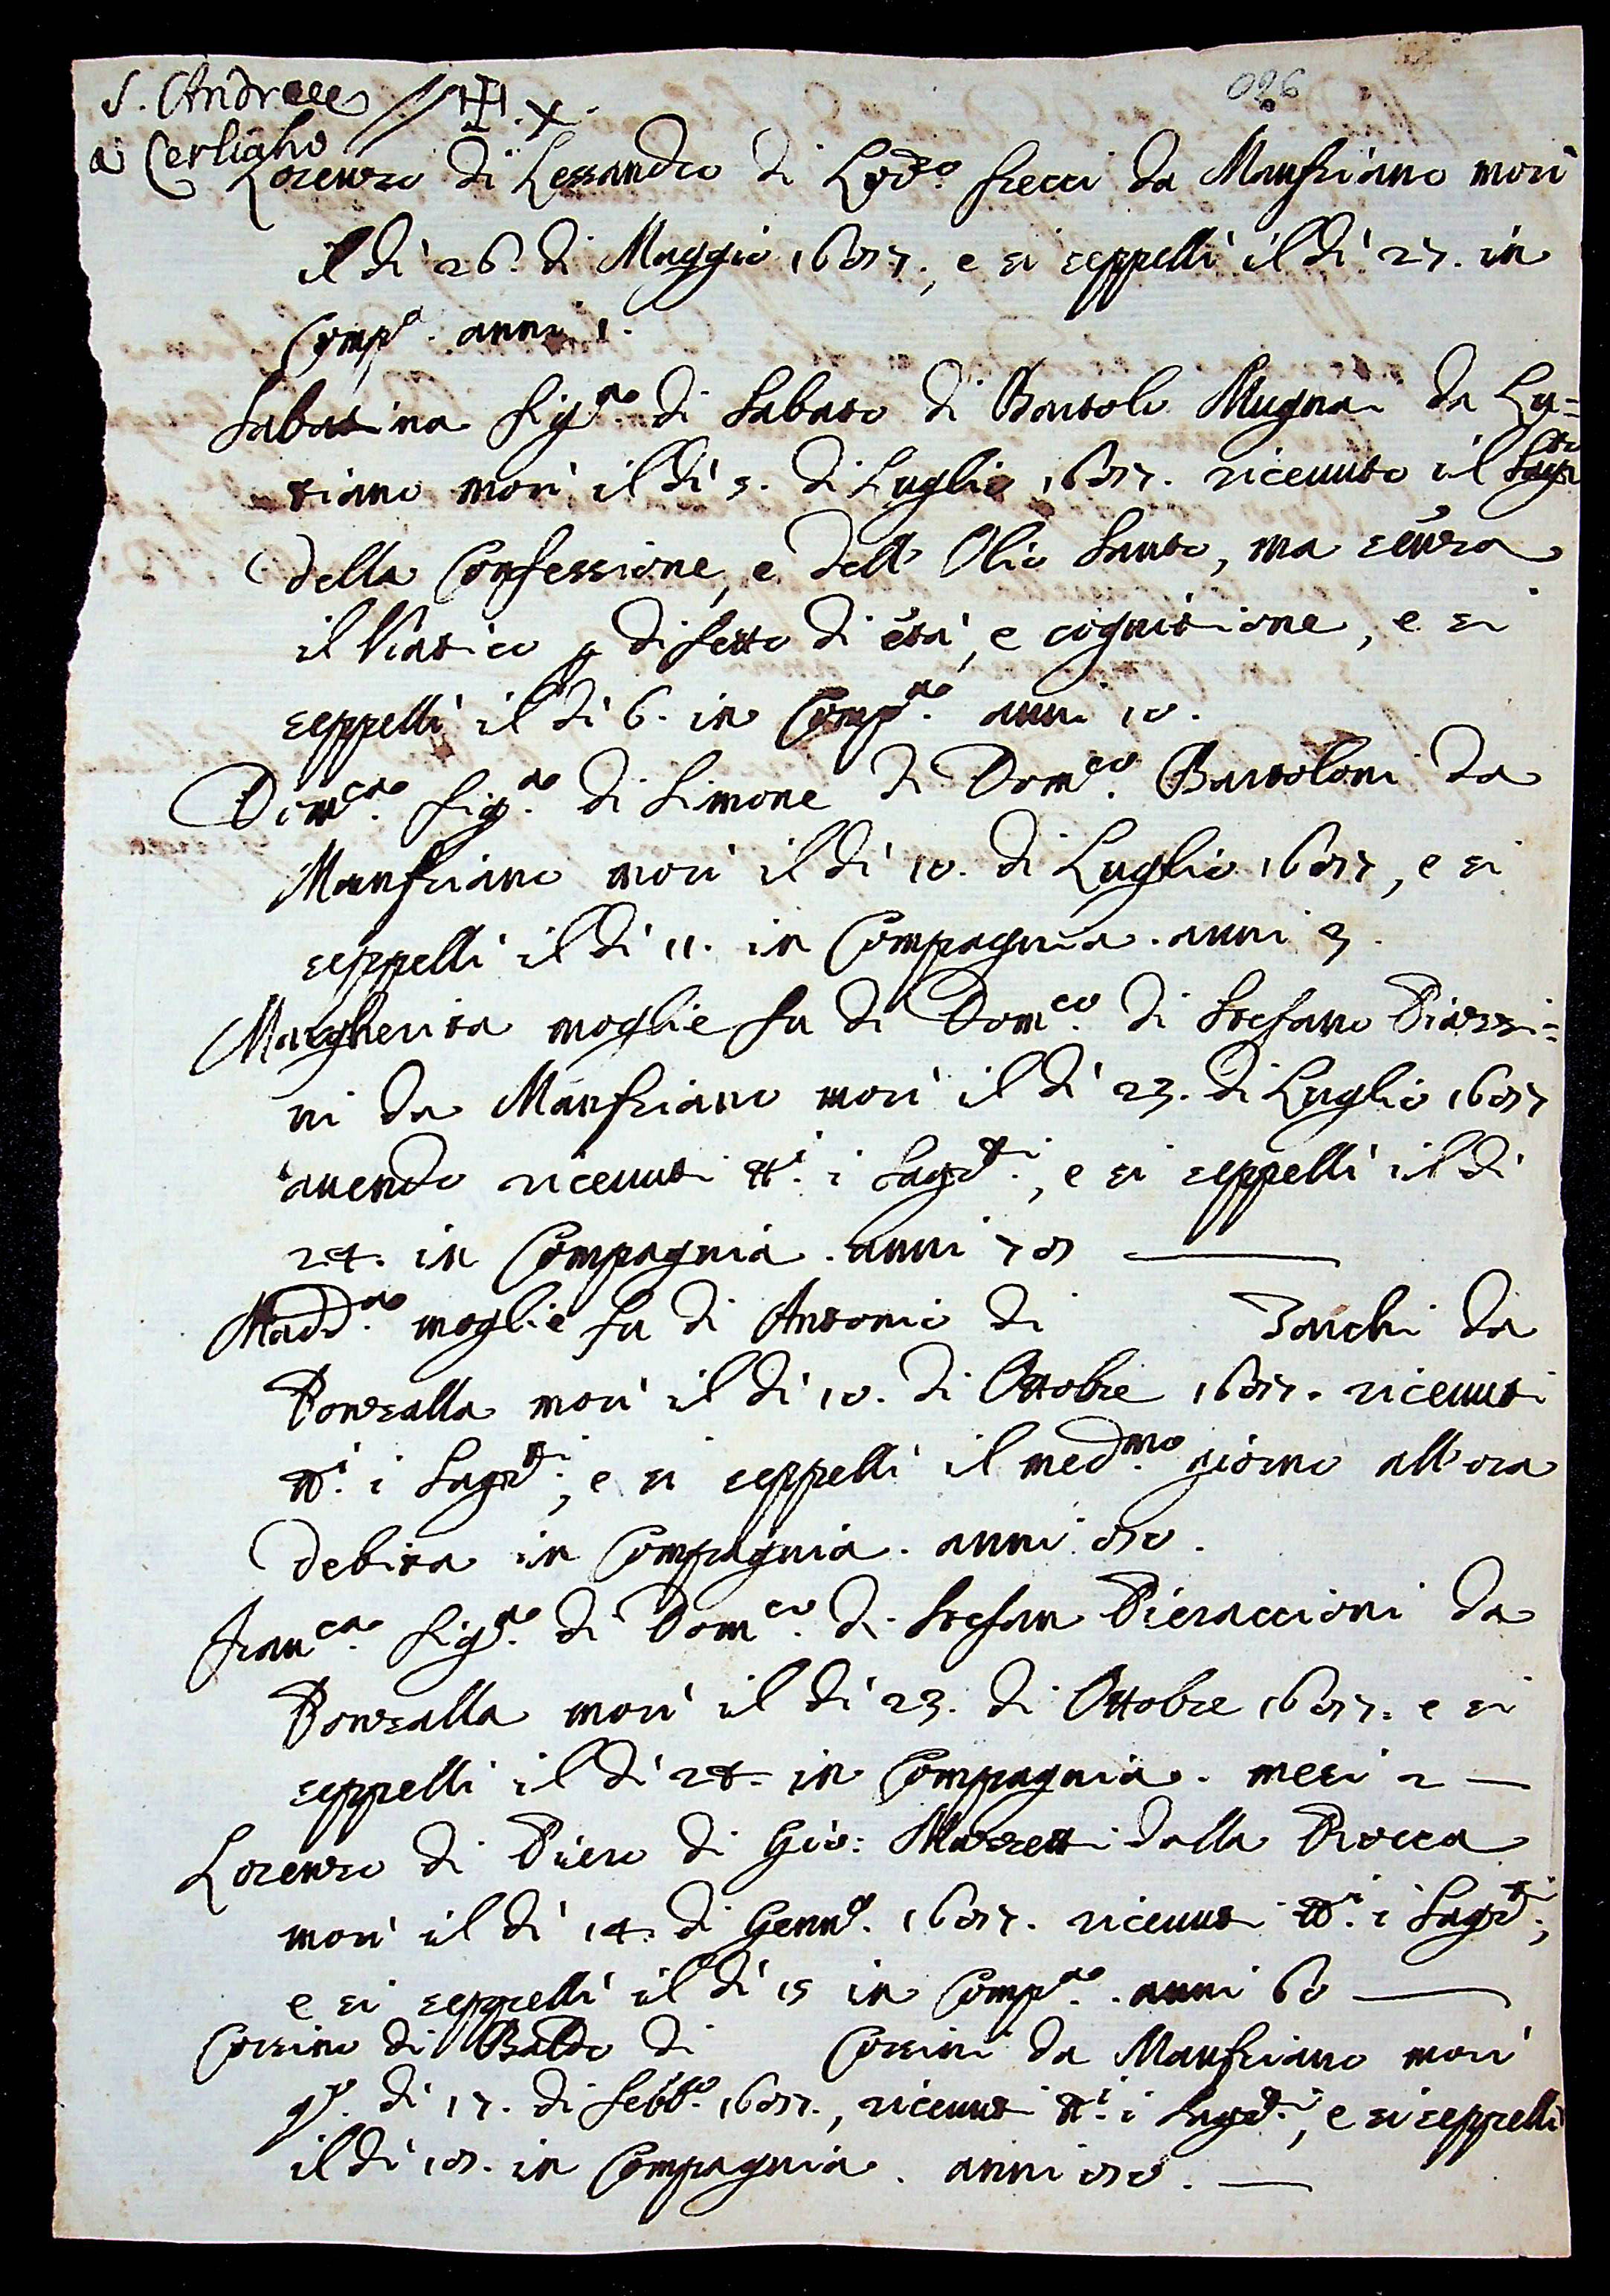 S. Andreae
a Cerliano
026
Lorenzo di Lessandro di Lodo. Frecci da Manfriano morì
il dì 26. di Maggio 1687., e si seppellì il dì 27. in
Compa. anni 1.
Sabatina figla. di Sabato di Bartolo Mugnai da Lu=
tiano morì il dì 5. di Luglio 1687. riceuuto il Sagrto
della Confessione, e dell' Olio Santo, ma senza
il Viatico p difetto di età, e cognitione, e si
seppellì il dì 6. in Compa. anni 10.
Domca. figa. di Simone di Domco. Bartoloni da
Manfriano morì il dì 10. di Luglio 1687, e si
seppellì il dì 11. in Compagnia. anni 3.
Margherita moglie fu di Domco. di Stefano Piazzi=
ni da Manfriano morì il dì 23. di Luglio 1687
auendo riceuuti tti. i Sagrti., e si seppellì il dì
24. in Compagnia. anni 78
Madda. moglie fu di Antonio di Zanchi da
Ponzalla morì il dì 10. di Ottobre 1687. riceuuti
tti. i Sagrti., e si seppellì il medmo. giorno all'ora
debita in Compagnia. anni 80.
Franca. figla. di Domco. di Stefan Pieraccioni da
Ponzalla morì il dì 23. di Ottobre 1687. e si
seppellì il dì 24. in Compagnia. mesi 2
Lorenzo di Piero di Gio: Mazzetti dalla Rocca
morì il dì 14. di Genno. 1687. riceuuti tti. i Sagrti.,
e si seppellì il dì 15 in Compa. anni 60
Corsino di Baldo di Corsini da Manfriano morì
qto. dì 17. di Febbo. 1687., riceuuti tti. i Sagrti., e si seppellì
il dì 18. in Compagnia. anni 80.